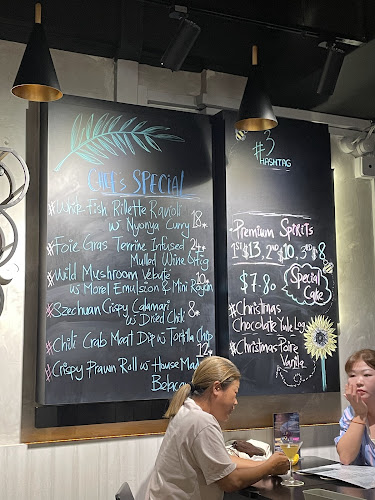 CHEF'S SPECIAL
*White Fish Rillette Ravioli
w Nyonya Curry 18*
*Foie Gras Terrine Infused 24*
Mulled Wine & Fig
*Wild Mushroom Veloute 10*
w Morel Emulsion & Mini
*Szechuan Crispy Calamari 8*
w Dried Chili
*Chili Crab Meat Dip w Tortilla Chip
12*
*Crispy Prawn Roll w House Made
Belacan
#3
HASHTAG
*Premium SPiRiTS
1ST $13, 2ND $10, 3RD $8
$7.80
Special
Cake
*Christmas
Chocolate Yule Log
*Christmas Poire
Vanille